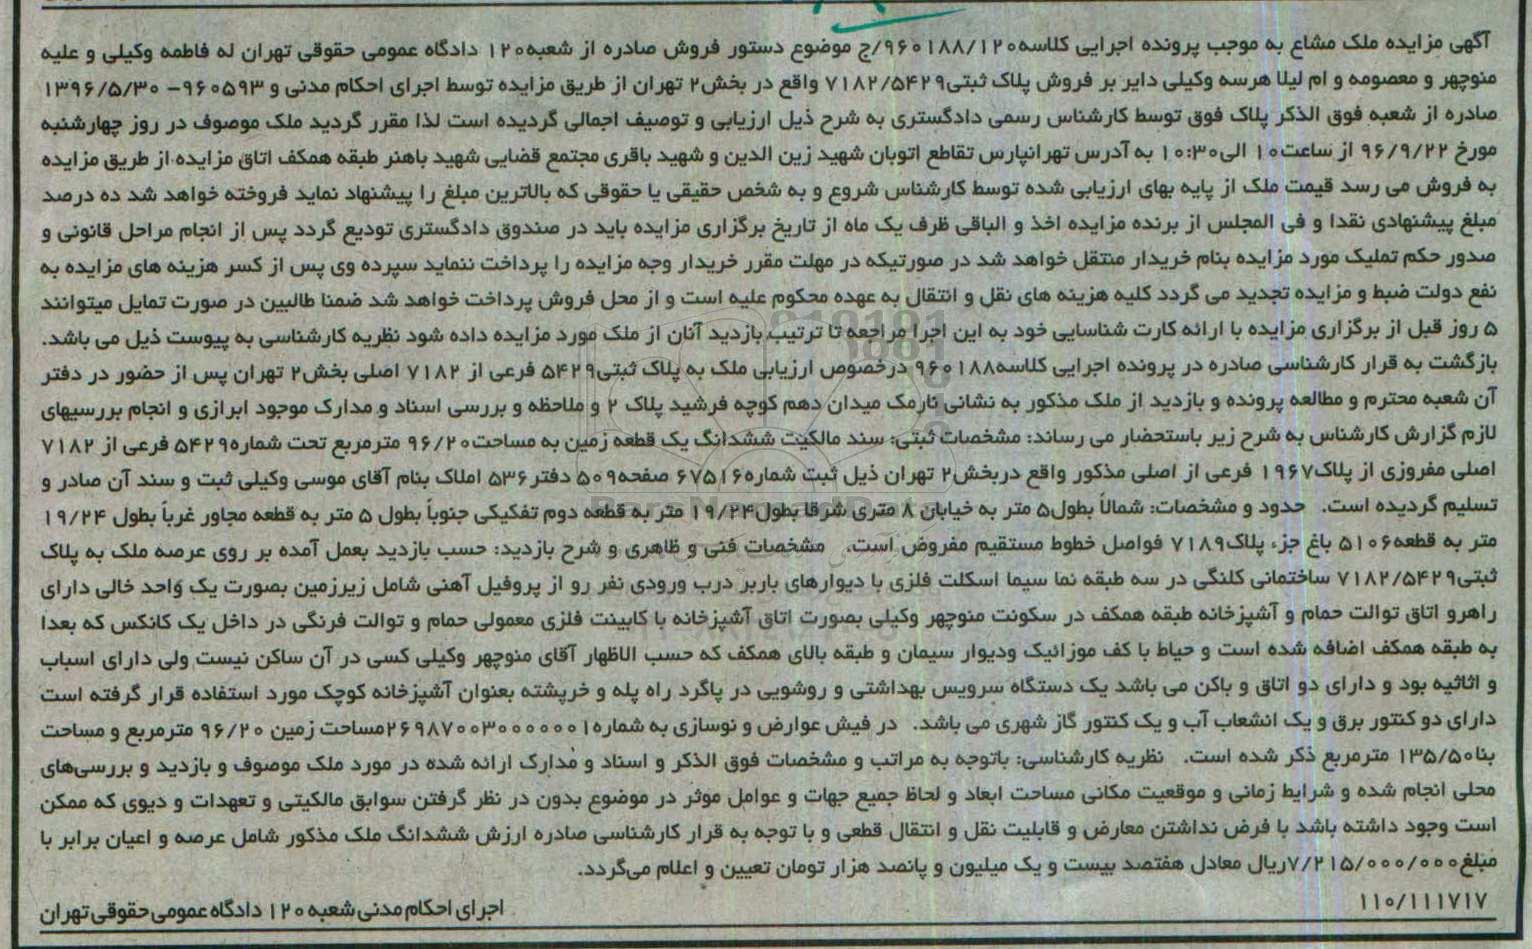 آگهی مزایده ملک مشاع به موجب پرونده اجرایی کلاسه۹۶۰۱۸۸/۱۲۰/ج موضوع دستور فروش صادره از شعبه۱۲۰ دادگاه عمومی حقوقی تهران له فاطمه وکیلی و علیه
منوچهر و معصومه و ام لیلا هرسه وکیلی دایر بر فروش پلاک ثبتی۷۱۸۲/۵۴۲۹ واقع در بخش۲ تهران از طریق مزایده توسط اجرای احکام مدنی و ۹۶۰۵۹۳- ۱۳۹۶/۵/۳۰
صادره از شعبه فوق الذکر پلاک فوق توسط کارشناس رسمی دادگستری به شرح ذیل ارزیابی و توصیف اجمالی گردیده است لذا مقرر گردید ملک موصوف در روز چهارشنبه
مورخ ۹۶/۹/۲۲ از ساعت۱۰ الی۱۰:۳۰ به آدرس تهرانپارس تقاطع اتوبان شهید زین الدین و شهید باقری مجتمع قضایی شهید باهنر طبقه همکف اتاق مزایده از طریق مزایده
به فروش می رسد قیمت ملک از پایه بهای ارزیابی شده توسط کارشناس شروع و به شخص حقیقی یا حقوقی که بالاترین مبلغ را پیشنهاد نماید فروخته خواهد شد ده درصد
مبلغ پیشنهادی نقدا و فی المجلس از برنده مزایده اخذ و الباقی ظرف یک ماه از تاریخ برگزاری مزایده باید در صندوق دادگستری تودیع گردد پس از انجام مراحل قانونی و
صدور حکم تملیک مورد مزایده بنام خریدار منتقل خواهد شد در صورتیکه در مهلت مقرر خریدار وجه مزایده را پرداخت ننماید سپرده وی پس از کسر هزینه های مزایده به
نفع دولت ضبط و مزایده تجدید می گردد کلیه هزینه های نقل و انتقال به عهده محکوم علیه است و از محل فروش پرداخت خواهد شد ضمنا طالبین در صورت تمایل میتوانند
۵ روز قبل از برگزاری مزایده با ارائه کارت شناسایی خود به این اجرا مراجعه تا ترتیب بازدید آنان از ملک مورد مزایده داده شود نظریه کارشناسی به پیوست ذیل می باشد.
بازگشت به قرار کارشناسی صادره در پرونده اجرایی کلاسه۹۶۰۱۸۸ درخصوص ارزیابی ملک به پلاک ثبتی۵۴۲۹ فرعی از ۷۱۸۲ اصلی بخش۲ تهران پس از حضور در دفتر
آن شعبه محترم و مطالعه پرونده و بازدید از ملک مذکور به نشانی نارمک میدان دهم کوچه فرشید پلاک ۲ و ملاحظه و بررسی اسناد و مدارک موجود ابرازی و انجام بررسیهای
لازم گزارش کارشناس به شرح زیر باستحضار می رساند: مشخصات ثبتی: سند مالکیت ششدانگ یک قطعه زمین به مساحت۹۶/۲۰ مترمربع تحت شماره۵۴۲۹ فرعی از ۷۱۸۲
اصلی مفروزی از پلاک۱۹۶۷ فرعی از اصلی مذکور واقع دربخش۲ تهران ذیل ثبت شماره۶۷۵۱۶ صفحه۵۰۹ دفتر۵۳۶ املاک بنام آقای موسی وکیلی ثبت و سند آن صادر و
تسلیم گردیده است. حدود و مشخصات: شمالاً بطول۵ متر به خیابان ۸ متری شرقا بطول۱۹/۲۴ متر به قطعه دوم تفکیکی جنوباً بطول ۵ متر به قطعه مجاور غرباً بطول ۱۹/۲۴
متر به قطعه۵۱۰۶ باغ جزء پلاک۷۱۸۹ فواصل خطوط مستقیم مفروض است. مشخصات فنی و ظاهری و شرح بازدید: حسب بازدید بعمل آمده بر روی عرصه ملک به پلاک
ثبتی۷۱۸۲/۵۴۲۹ ساختمانی کلنگی در سه طبقه نما سیما اسکلت فلزی با دیوارهای باربر درب ورودی نفر رو از پروفیل آهنی شامل زیرزمین بصورت یک واحد خالی دارای
راهرو اتاق توالت حمام و آشپزخانه طبقه همکف در سکونت منوچهر وکیلی بصورت اتاق آشپزخانه با کابینت فلزی معمولی حمام و توالت فرنگی در داخل یک کانکس که بعدا
به طبقه همکف اضافه شده است و حیاط با کف موزائیک ودیوار سیمان و طبقه بالای همکف که حسب الاظهار آقای منوچهر وکیلی کسی در آن ساکن نیست ولی دارای اسباب
و اثاثیه بود و دارای دو اتاق و باکن می باشد یک دستگاه سرویس بهداشتی و روشویی در پاگرد راه پله و خرپشته بعنوان آشپزخانه کوچک مورد استفاده قرار گرفته است
دارای دو کنتور برق و یک انشعاب آب و یک کنتور گاز شهری می باشد. در فیش عوارض و نوسازی به شماره۲۶۹۸۷۰۰۳۰۰۰۰۰۰۱مساحت زمین ۹۶/۲۰ مترمربع و مساحت
بنا۱۳۵/۵۰ مترمربع ذکر شده است. نظریه کارشناسی: باتوجه به مراتب و مشخصات فوق الذکر و اسناد و مدارک ارائه شده در مورد ملک موصوف و بازدید و بررسی‌های
محلی انجام شده و شرایط زمانی و موقعیت مکانی مساحت ابعاد و لحاظ جمیع جهات و عوامل موثر در موضوع بدون در نظر گرفتن سوابق مالکیتی و تعهدات و دیوی که ممکن
است وجود داشته باشد با فرض نداشتن معارض و قابلیت نقل و انتقال قطعی و با توجه به قرار کارشناسی صادره ارزش ششدانگ ملک مذکور شامل عرصه و اعیان برابر با
مبلغ۷/۲۱۵/۰۰۰/۰۰۰ریال معادل هفتصد بیست و یک میلیون و پانصد هزار تومان تعیین و اعلام می‌گردد.
۱۱۰/۱۱۱۷۱۷
اجرای احکام مدنی شعبه ۱۲۰ دادگاه عمومی حقوقی تهران